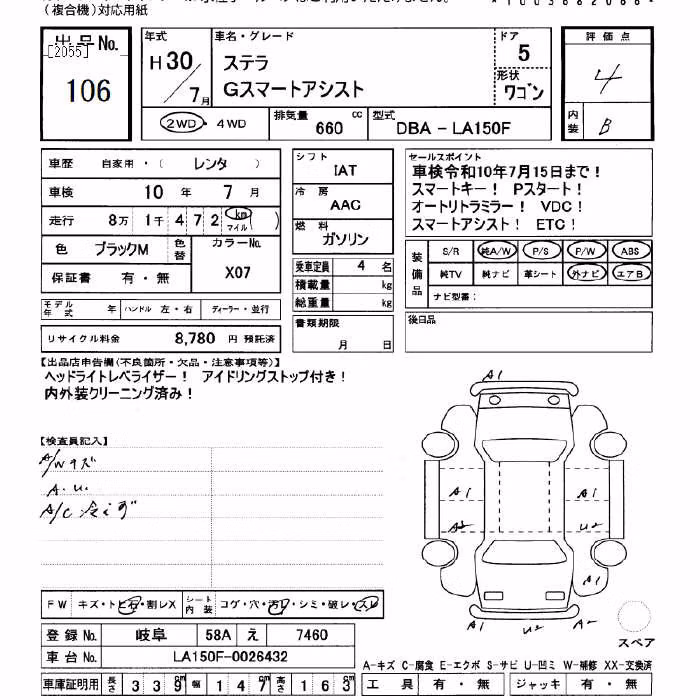 (複合機)対応用紙
出品No. 年式 車名・グレード ドア 評価点
[2055] H30 ステラ 5 4
106 7月 Gスマートアシスト 形状 ワゴン
2WD・4WD 排気量 660 cc 型式 DBA - LA150F 内装 B
車歴 自家用・( レンタ )
車検 10 年 7 月
走行 8万 1千 4 7 2 km マイル ( )
色 ブラックM 色替 カラーNo. X07
保証書 有・無
モデル年式 年 ハンドル 左・右 ディーラー・並行
リサイクル料金 8,780 円 預託済
シフト IAT
冷房 AAC
燃料 ガソリン
乗車定員 4 名
積載量 kg
総重量 kg
書類期限 月 日
セールスポイント
車検令和10年7月15日まで!
スマートキー! Pスタート!
オートリトラミラー! VDC!
スマートアシスト! ETC!
装備品 S/R 純A/W P/S P/W ABS
純TV 純ナビ 革シート 外ナビ エアB
ナビ型番:
後日品
【出品店申告欄(不良箇所・欠品・注意事項等)】
ヘッドライトレベライザー! アイドリングストップ付き!
内外装クリーニング済み!
【検査員記入】
A/Wキズ
A.U.
A/C 冷えず
A1
A1 A1
A2 U2
A1
A1 U2 A2
スペア
FW キズ・トビ石・割レX シート内装 コゲ・穴・汚レ・シミ・破レ・スレ
登録No. 岐阜 58A え 7460
車台No. LA150F-0026432
車庫証明用 長さ 339cm 幅 147cm 高さ 163cm
A-キズ C-腐食 E-エクボ S-サビ U-凹ミ W-補修 XX-交換済
工具 有・無 ジャッキ 有・無